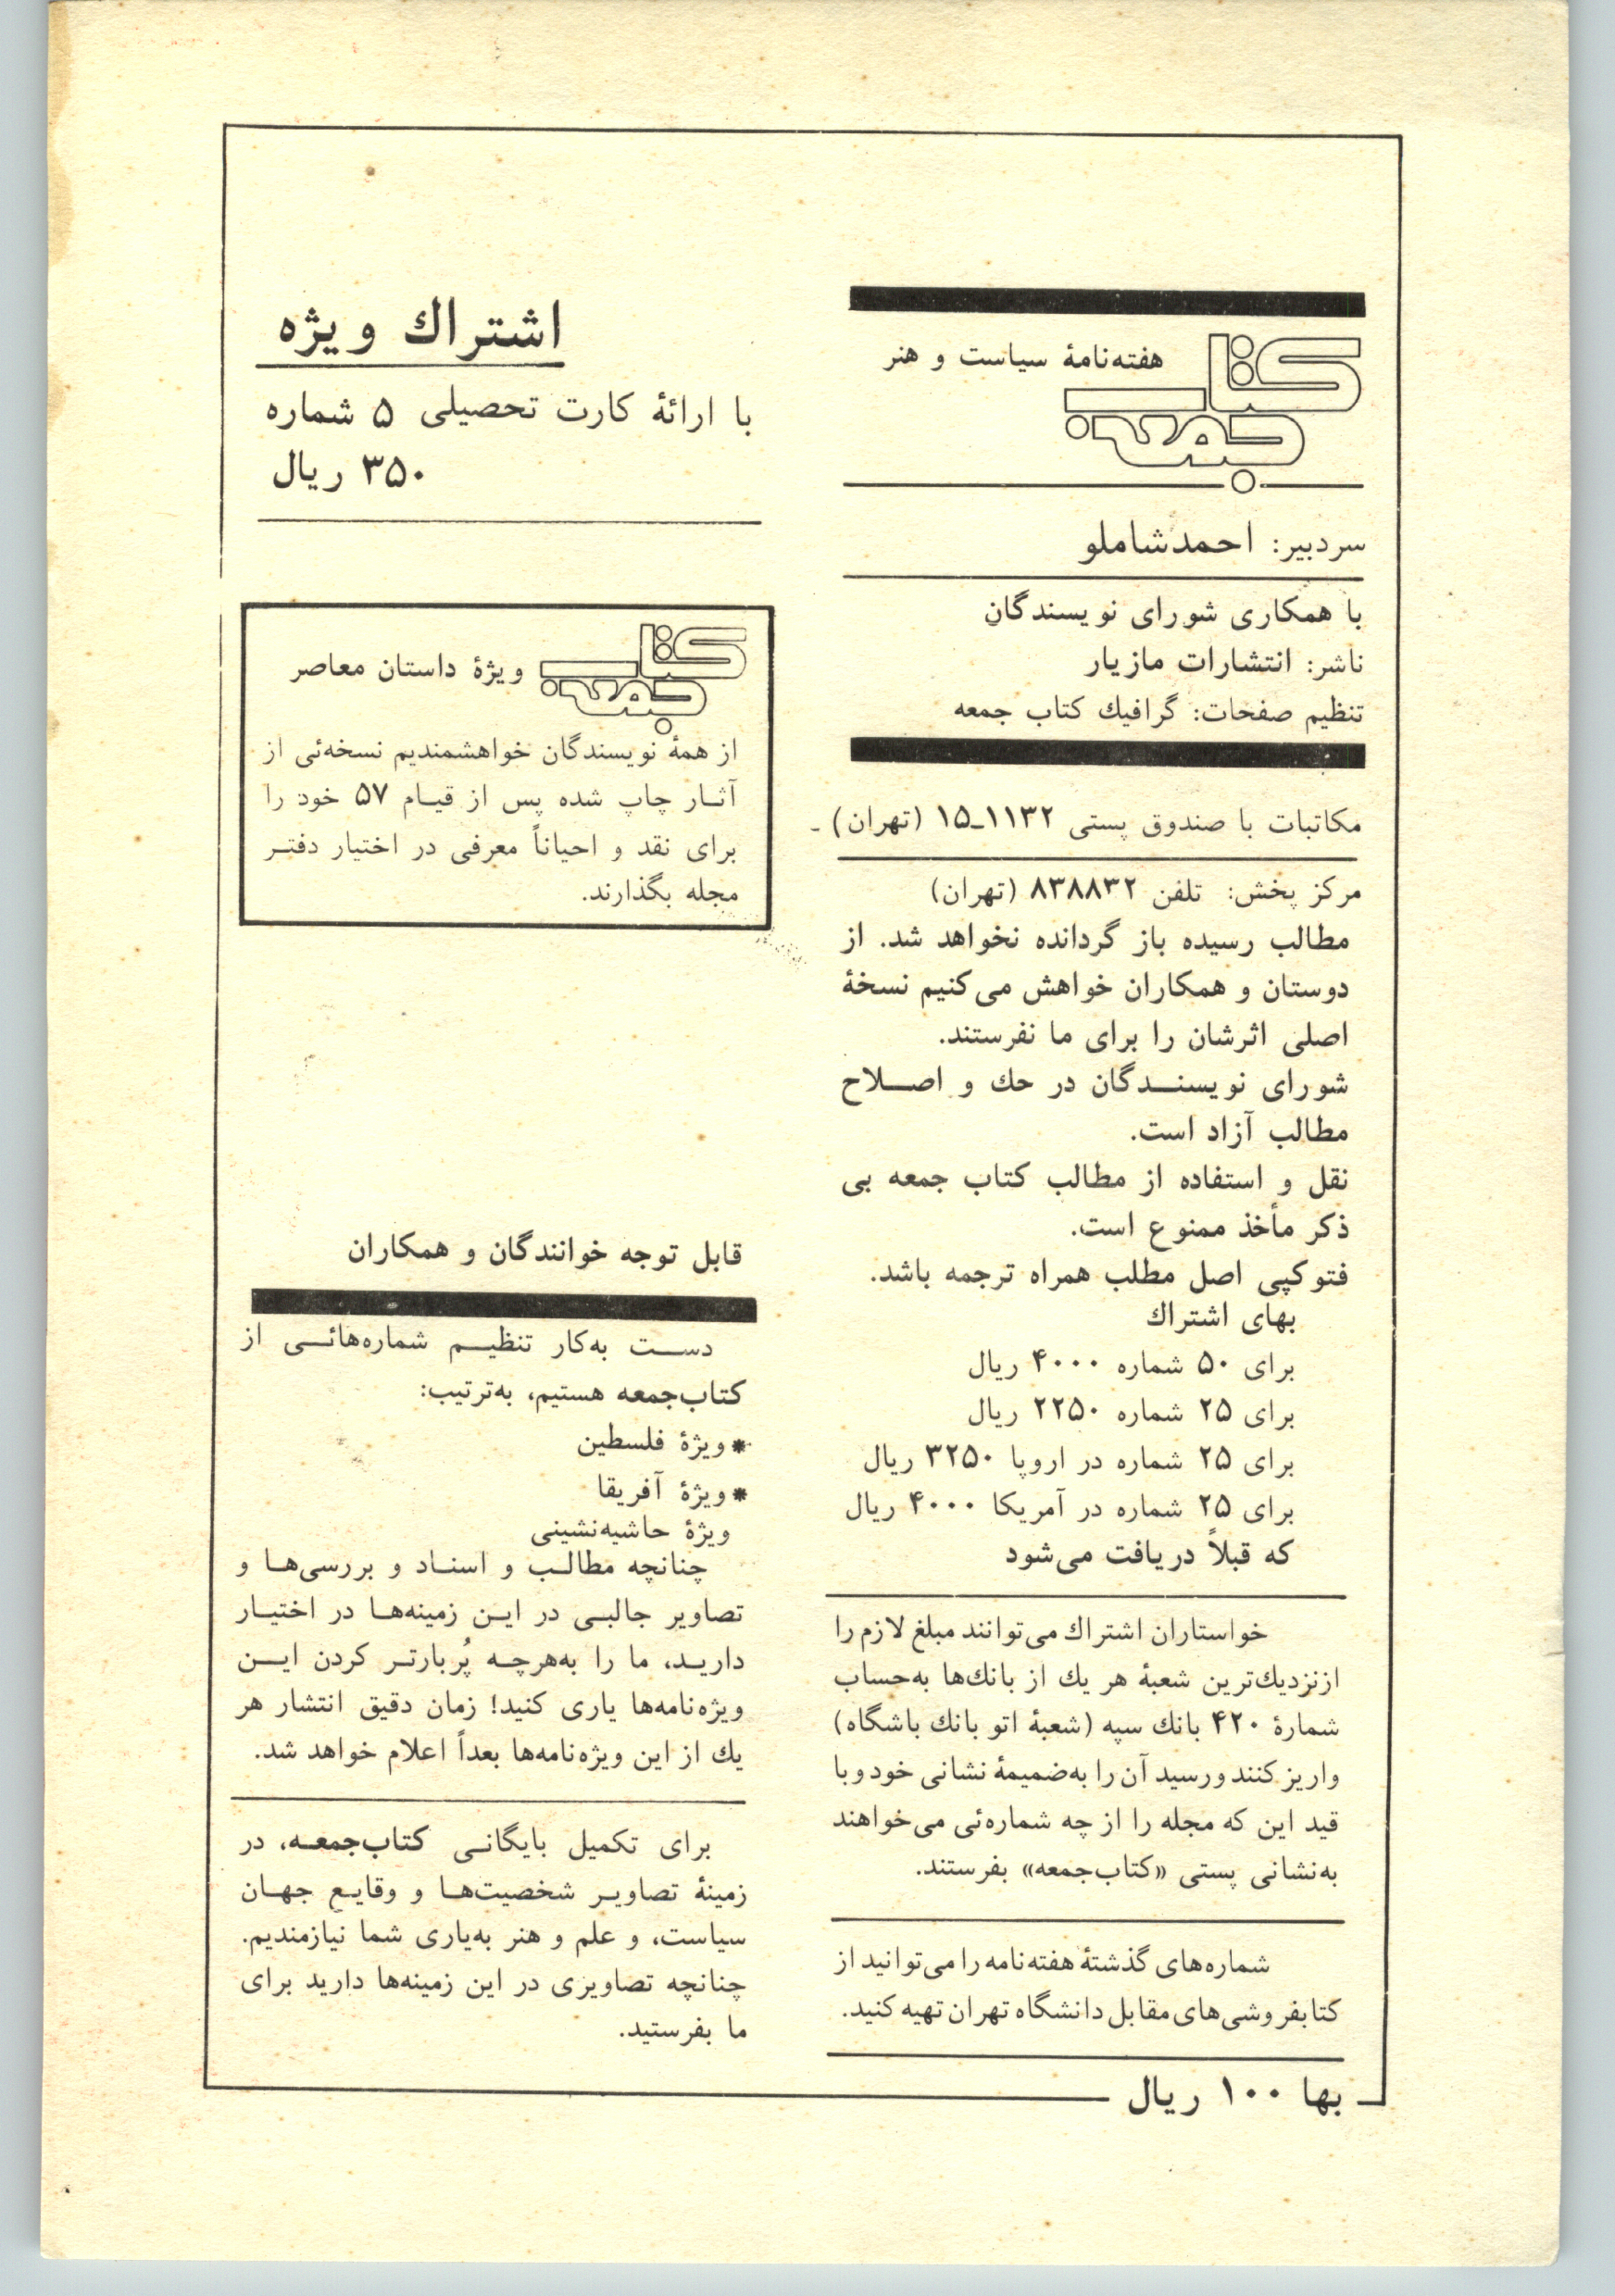 کتاب جمعه
هفته‌نامهٔ سیاست و هنر
سردبیر: احمدشاملو
با همکاری شورای نویسندگان
ناشر: انتشارات مازیار
تنظیم صفحات: گرافیك کتاب جمعه
مکاتبات با صندوق پستی ۱۱۳۲ـ۱۵ (تهران) ـ
مرکز پخش: تلفن ۸۳۸۸۳۲ (تهران)
مطالب رسیده باز گردانده نخواهد شد. از
دوستان و همکاران خواهش می‌کنیم نسخهٔ
اصلی اثرشان را برای ما نفرستند.
شورای نویسنـدگان در حك و اصـلاح
مطالب آزاد است.
نقل و استفاده از مطالب کتاب جمعه بی
ذکر مأخذ ممنوع است.
فتوکپی اصل مطلب همراه ترجمه باشد.
بهای اشتراك
برای ۵۰ شماره ۴۰۰۰ ریال
برای ۲۵ شماره ۲۲۵۰ ریال
برای ۲۵ شماره در اروپا ۳۲۵۰ ریال
برای ۲۵ شماره در آمریکا ۴۰۰۰ ریال
که قبلاً دریافت می‌شود
خواستاران اشتراك می‌توانند مبلغ لازم را
ازنزدیك‌ترین شعبهٔ هر یك از بانك‌ها به‌حساب
شمارهٔ ۴۲۰ بانك سپه (شعبهٔ اتو بانك باشگاه)
واریز کنند و رسید آن را به‌ضمیمهٔ نشانی خود و با
قید این که مجله را از چه شماره‌ئی می‌خواهند
به‌نشانی پستی «کتاب‌جمعه» بفرستند.
شماره‌های گذشتهٔ هفته‌نامه را می‌توانید از
کتابفروشی‌های مقابل دانشگاه تهران تهیه کنید.
بها ۱۰۰ ریال
اشتراك ویژه
با ارائهٔ کارت تحصیلی ۵ شماره
۳۵۰ ریال
کتاب جمعه
ویژهٔ داستان معاصر
از همهٔ نویسندگان خواهشمندیم نسخه‌ئی از
آثـار چاپ شده پس از قیـام ۵۷ خود را
برای نقد و احیاناً معرفی در اختیار دفتـر
مجله بگذارند.
قابل توجه خوانندگان و همکاران
دسـت به‌کار تنظیـم شماره‌هائـی از
کتاب‌جمعه هستیم، به‌ترتیب:
* ویژهٔ فلسطین
* ویژهٔ آفریقا
ویژهٔ حاشیه‌نشینی
چنانچه مطالـب و اسنـاد و بررسی‌هـا و
تصاویر جالبـی در ایـن زمینه‌هـا در اختیـار
داریـد، ما را به‌هرچـه پُربارتـر کردن ایـن
ویژه‌نامه‌ها یاری کنید! زمان دقیق انتشار هر
یك از این ویژه‌نامه‌ها بعداً اعلام خواهد شد.
برای تکمیل بایگانـی کتاب‌جمعـه، در
زمینهٔ تصاویـر شخصیت‌هـا و وقایـع جهـان
سیاست، و علم و هنر به‌یاری شما نیازمندیم.
چنانچه تصاویری در این زمینه‌ها دارید برای
ما بفرستید.